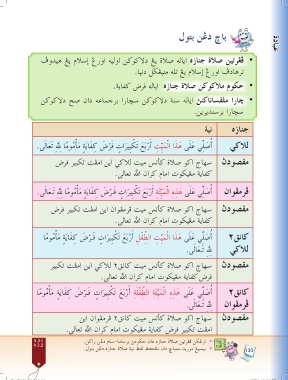 عبادة
باچ دڠن بتول
• ڤڠرتين صلاة جنازه اياله صلاة يڠ دلاكوكن اوليه اورڠ إسلام يڠ هيدوڤ
ترهادڤ اورڠ إسلام يڠ تله منيڠݢلكن دنيا.
• حكوم ملاكوكن صلاة جنازه اياله فرض كفاية.
• چارا ملقساناكن صلاة جنازه اياله سنة دلاكوكن سچارا برجماعه دان صح دلاكوكن
سچارا برسنديرين.
جنازه
نية
للاكي
أُصَلِّي عَلَى هَذَا الْمَيِّتِ أَرْبَعَ تَكْبِيرَاتٍ فَرْضَ كِفَايَةٍ مَأْمُومًا لِلّٰهِ تَعَالَى.
مقصودڽ
سهاج اكو صلاة كأتس ميت للاكي اين امڤت تكبير فرض
كفاية مڠيكوت امام كران الله تعالى.
ڤرمڤوان
أُصَلِّي عَلَى هَذِهِ الْمَيِّتَةِ أَرْبَعَ تَكْبِيرَاتٍ فَرْضَ كِفَايَةٍ مَأْمُومًا لِلّٰهِ تَعَالَى.
مقصودڽ
سهاج اكو صلاة كأتس ميت ڤرمڤوان اين امڤت تكبير فرض
كفاية مڠيكوت امام كران الله تعالى.
كانق٢
للاكي
أُصَلِّي عَلَى هَذَا الْمَيِّتِ الطِّفْلِ أَرْبَعَ تَكْبِيرَاتٍ فَرْضَ كِفَايَةٍ مَأْمُومًا
لِلّٰهِ تَعَالَى.
مقصودڽ
سهاج اكو صلاة كأتس ميت كانق٢ للاكي اين امڤت تكبير
فرض كفاية مڠيكوت امام كران الله تعالى.
كانق٢
ڤرمڤوان
أُصَلِّي عَلَى هَذِهِ الْمَيِّتَةِ الطِّفْلَةِ أَرْبَعَ تَكْبِيرَاتٍ فَرْضَ كِفَايَةٍ مَأْمُومًا
لِلّٰهِ تَعَالَى.
مقصودڽ
سهاج اكو صلاة كأتس ميت كانق٢ ڤرمڤوان اين
امڤت تكبير فرض كفاية مڠيكوت امام كران الله تعالى.
130